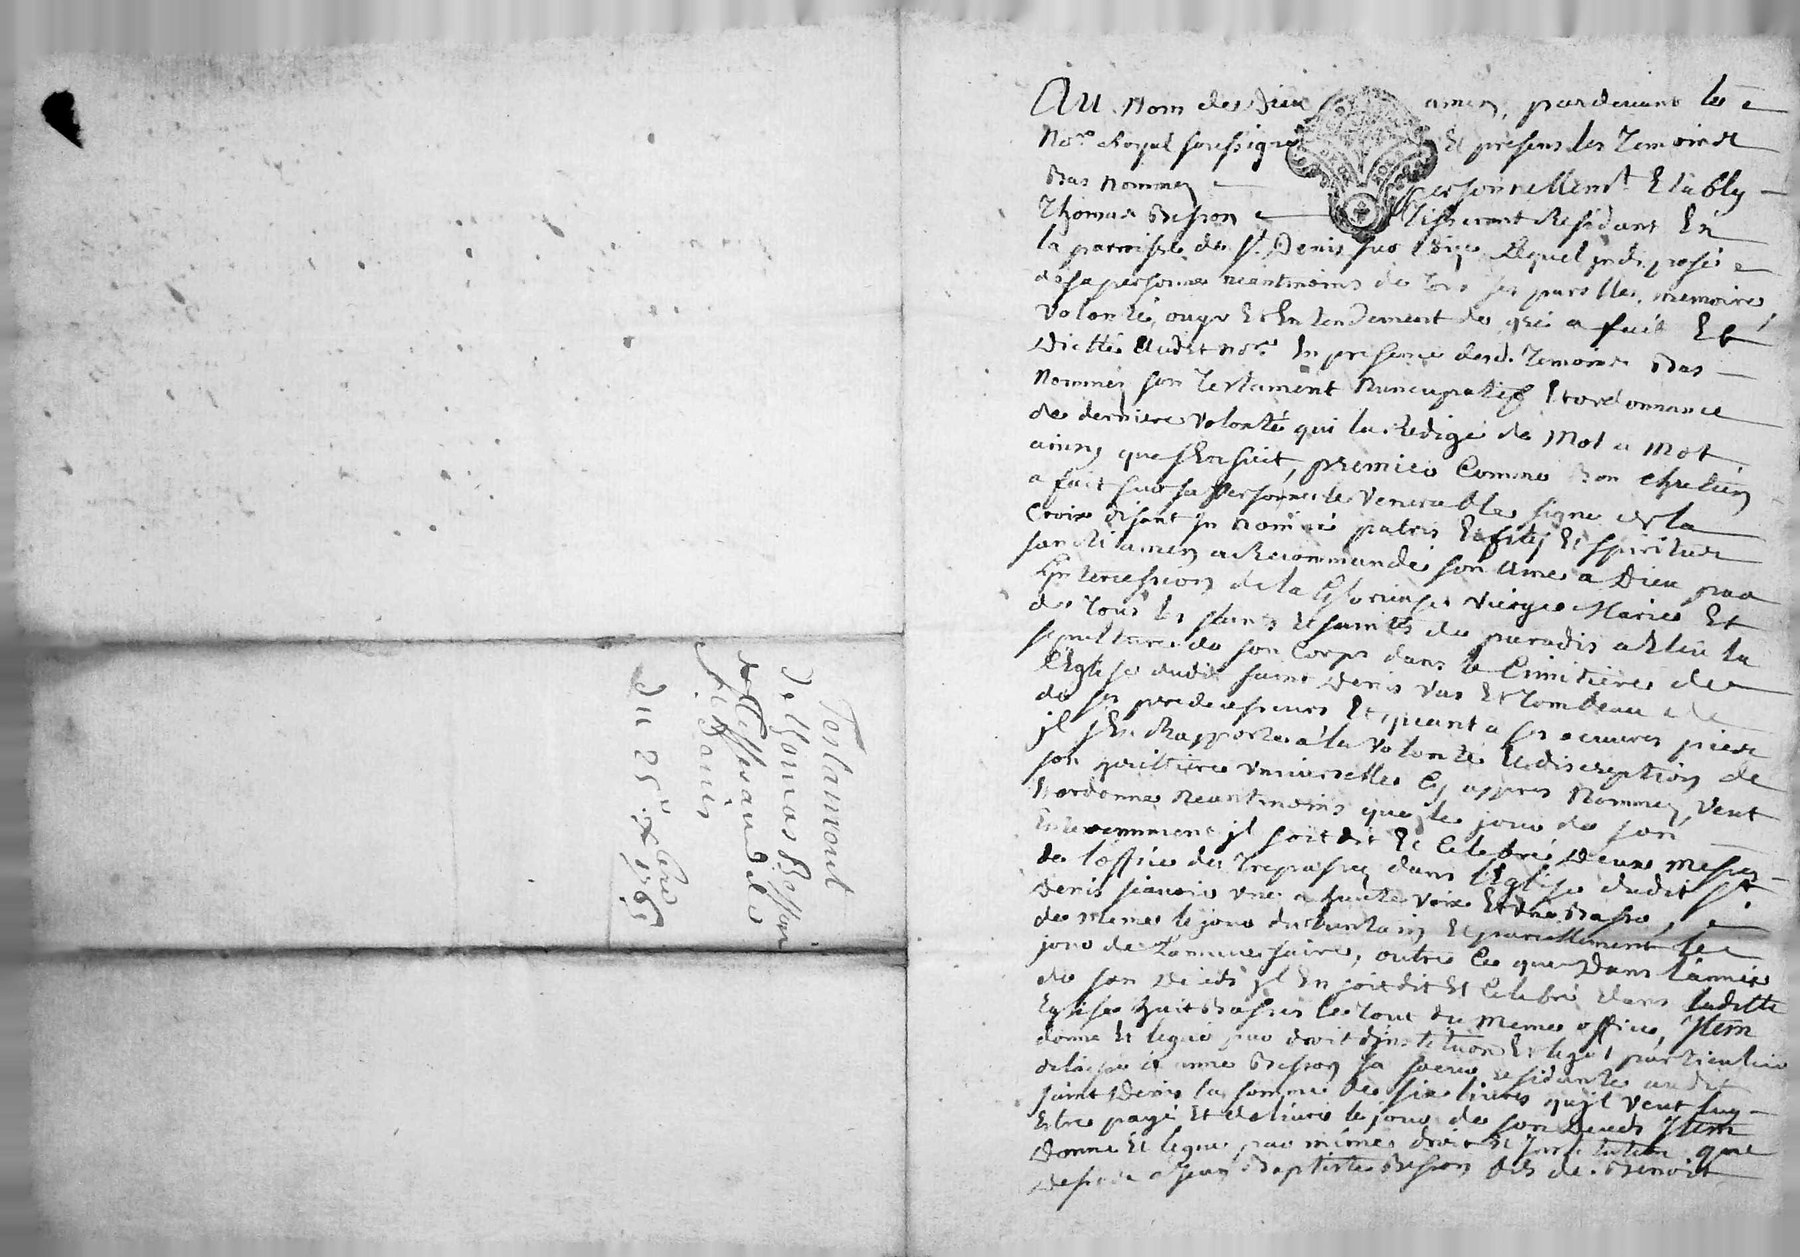 Testament
de thomas Besson
tisserand de
st Denis
du 25e 
Au Nom de Dieu amen, pardevant le
No.re Royal soussigné Et presens les Temoins
Bas nommez personnellemt Etably
Thomas Besson Tisserant Residant En
la parroisse de st. Denis sur Lequel jndisposé
de sa personne neantmoins de Tous ses parolle, memoire
Volonté, ouye Et Entendement de gré a fait Et
dictté audit nore. En presence desd. Temoins Bas
Nommez son Testament Nuncupatif Et ordonnance
de derniere Volonté qui la Redigé de Mot a Mot
ainsy que sEnsuit, premier Comme Bon Chretien
a fait sur sa personne le Venerable signe de la
Croix disant jn nominé patris Et filij Et spiritus
sancti amen a Recommandé son ame a Dieu par
Lintercession de la Glorieuse Vierge Marie Et
de Tous les saints Et saintes du paradis a Eleu la
sepulture de son Corps dans le Cimitiere de
lEglise dudit saint Denis Vas Et Tombeau
de ses predecesseurs Et quant a ses oeuvres pies
jl sEn Rapporte a la Volonté Et discreption de
son heritiere universelle Cy appres Nommez, Veut
Et ordonne Neantmoins que le jour de son
Enterremment jl soit dit Et Celebré Deux Messes
de loffice des Trepassez dans lEglise dudit st.
Denis sçavoir une a haute Voix Et une Basse,
de meme le jour du huntain Et pareillement le
jour de Lanniversaire, outre Ce que Dans lannée
de son deceds jl En soit dit Et Celebré dans laditte
Eglise huit Basses le Tout du meme office, jtem
donne Et legue par droit djnstitution Et legat particulier
delaissé a anne Besson sa soeur residante audit
saint Denis la somme de six livres qujl Veut luy
Estre payé Et delivré le jour de son Deceds jtem
Donne Et legue par même droit Et jnstitution que
Dessus a Jean Baptiste Besson fils de Benoit